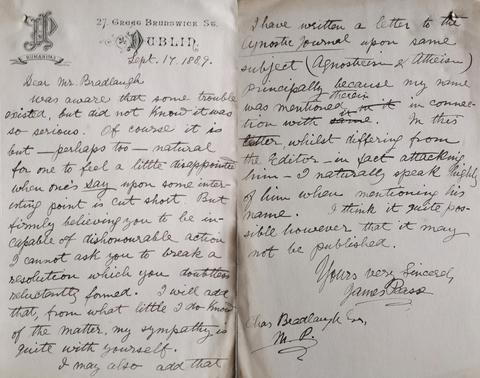 27. Great Brunswick St.
Dublin,
Sept. 17. 1889.
Dear Mr. Bradlaugh
was aware that some trouble
existed, but did not know it was
so serious. Of course it is
but — perhaps too — natural
for one to feel a little disappointed
when one's say upon some inter-
esting point is cut short. But
firmly believing you to be in-
capable of dishonourable action
I cannot ask you to break a
resolution which you doubtless
reluctantly formed. I will add
that, from what little I do know
of the matter, my sympathy is
quite with yourself.
I may also add that
I have written a letter to the
Agnostic Journal upon same
subject (Agnosticism & Atheism)
principally because my name
was mentioned therein in it in connec-
tion with same. In this
letter, whilst differing from
the Editor — in fact attacking
him — I naturally speak highly
of him when mentioning his
name. I think it quite pos-
sible however that it may
not be published.
Yours very Sincerely,
James
Chas Bradlaugh Esq,
M. P.